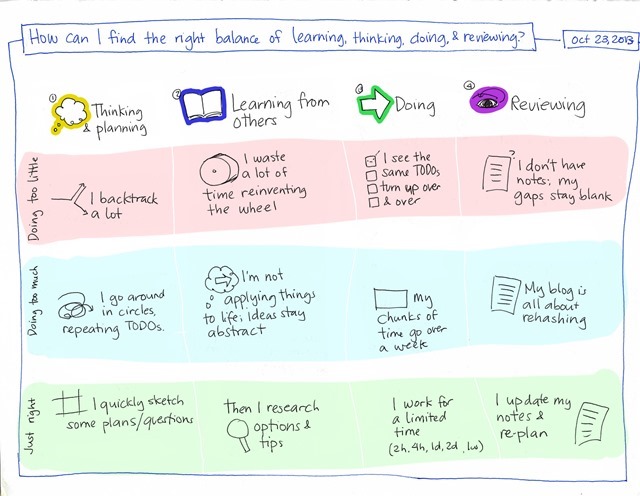 How can I find the right balance of learning, thinking, doing, & reviewing?
Oct 23, 2013
① Thinking
& planning
② Learning from
others
③ Doing
④ Reviewing
Doing too little
I backtrack
a lot
I waste
a lot of
time reinventing
the wheel
I see the
same TODOs
turn up over
& over
?
I don't have
notes; my
gaps stay blank
Doing too much
I go around
in circles,
repeating TODOs.
I'm not
applying things
to life; Ideas stay
abstract
my
chunks of
time go over
a week
My blog is
all about
rehashing
Just right
I quickly sketch
some plans/questions
Then I research
options &
tips
I work for
a limited
time
(2h, 4h, 1d, 2d, 1w)
I update my
notes &
re-plan